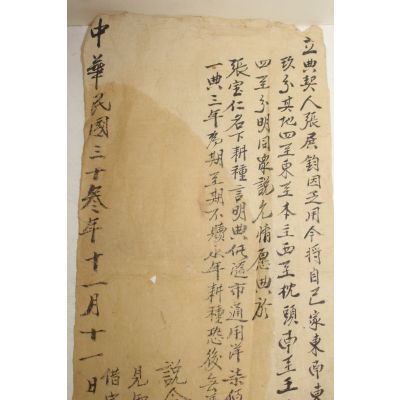 立典契人張展鈞因乏用今將自己家東南東
玖分其地四至東至本主西至枕頭南至王
四至分明同眾說允情愿典於
張宝仁名下耕種言明典価隨市通用洋柒佰
一典三年為期至期不贖永年耕種恐後無
說合
見
借
中華民國三十叁年十一月十一日